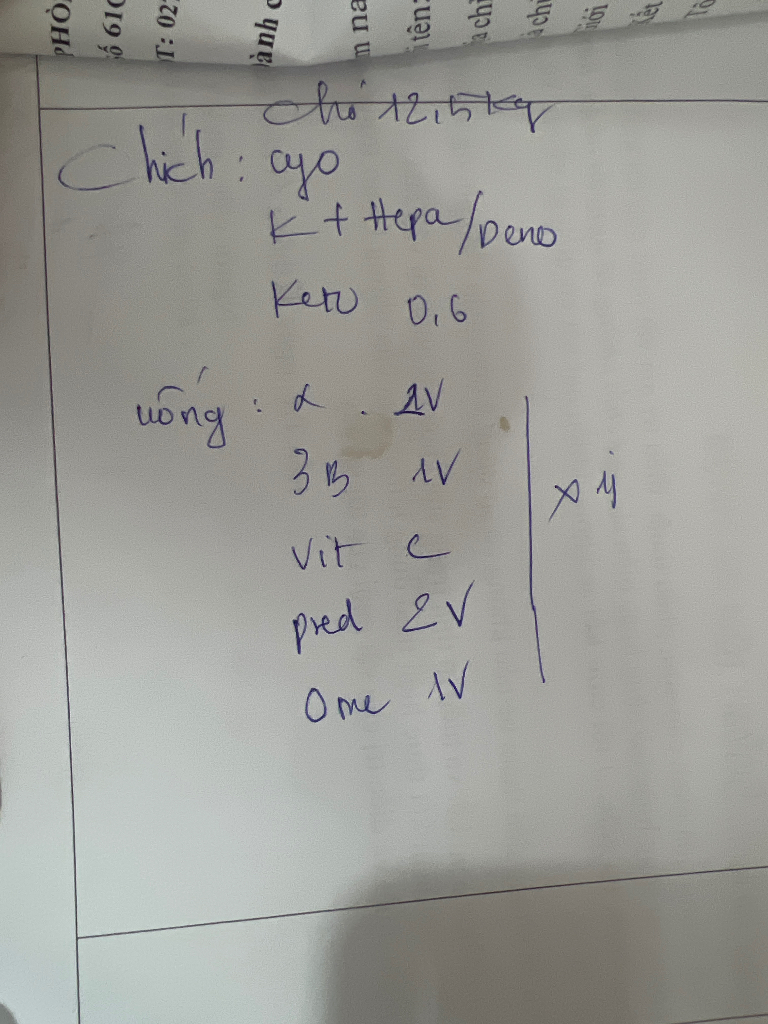 PHÒN
Số 610
T: 02
ành c
m na
tên:
a chỉ
chỉ
Giới
Kết
Chó 12,5 kg
Chích: cyo
K + Hepa/Deno
Keto 0,6
uống: α . 1V
3B 1V
Vit C
pred 2V
Ome 1V